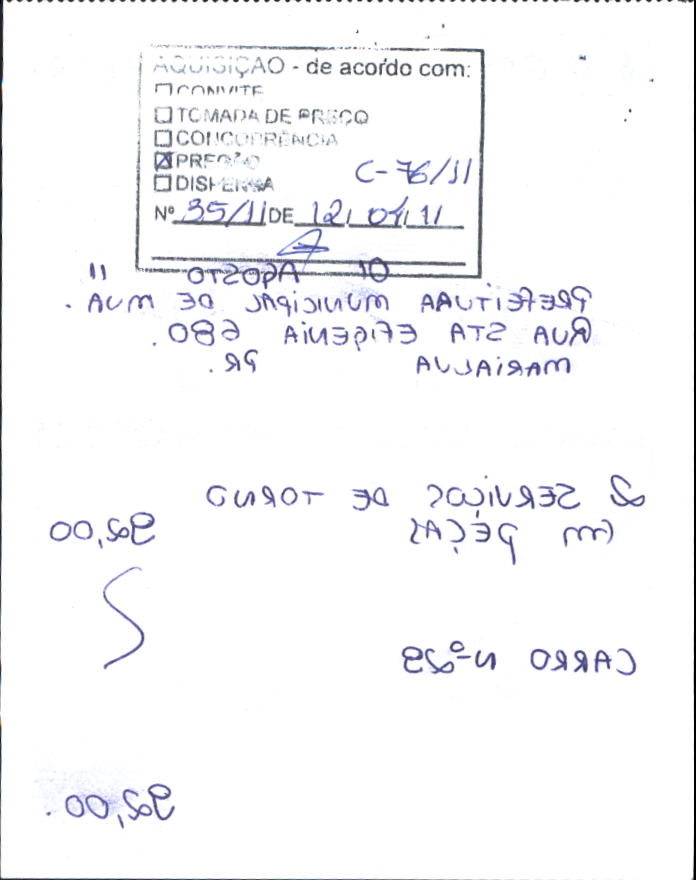 AQUISIÇÃO - de acordo com:
☐ CONVITE
☐ TOMADA DE PREÇO
☐ CONCORRÊNCIA
☒ PREGÃO
C-76/11
☐ DISPENSA
Nº 35/11 DE 12/04/11
01 AGOSTO 11
PREFEITURA MUNICIPAL DE MUA.
RUA STA EFIGENIA 680.
MARIALVA PR.
2 SERVIÇOS DE TORNO
EM PEÇAS 92,00
CARRO Nº 29
92,00.